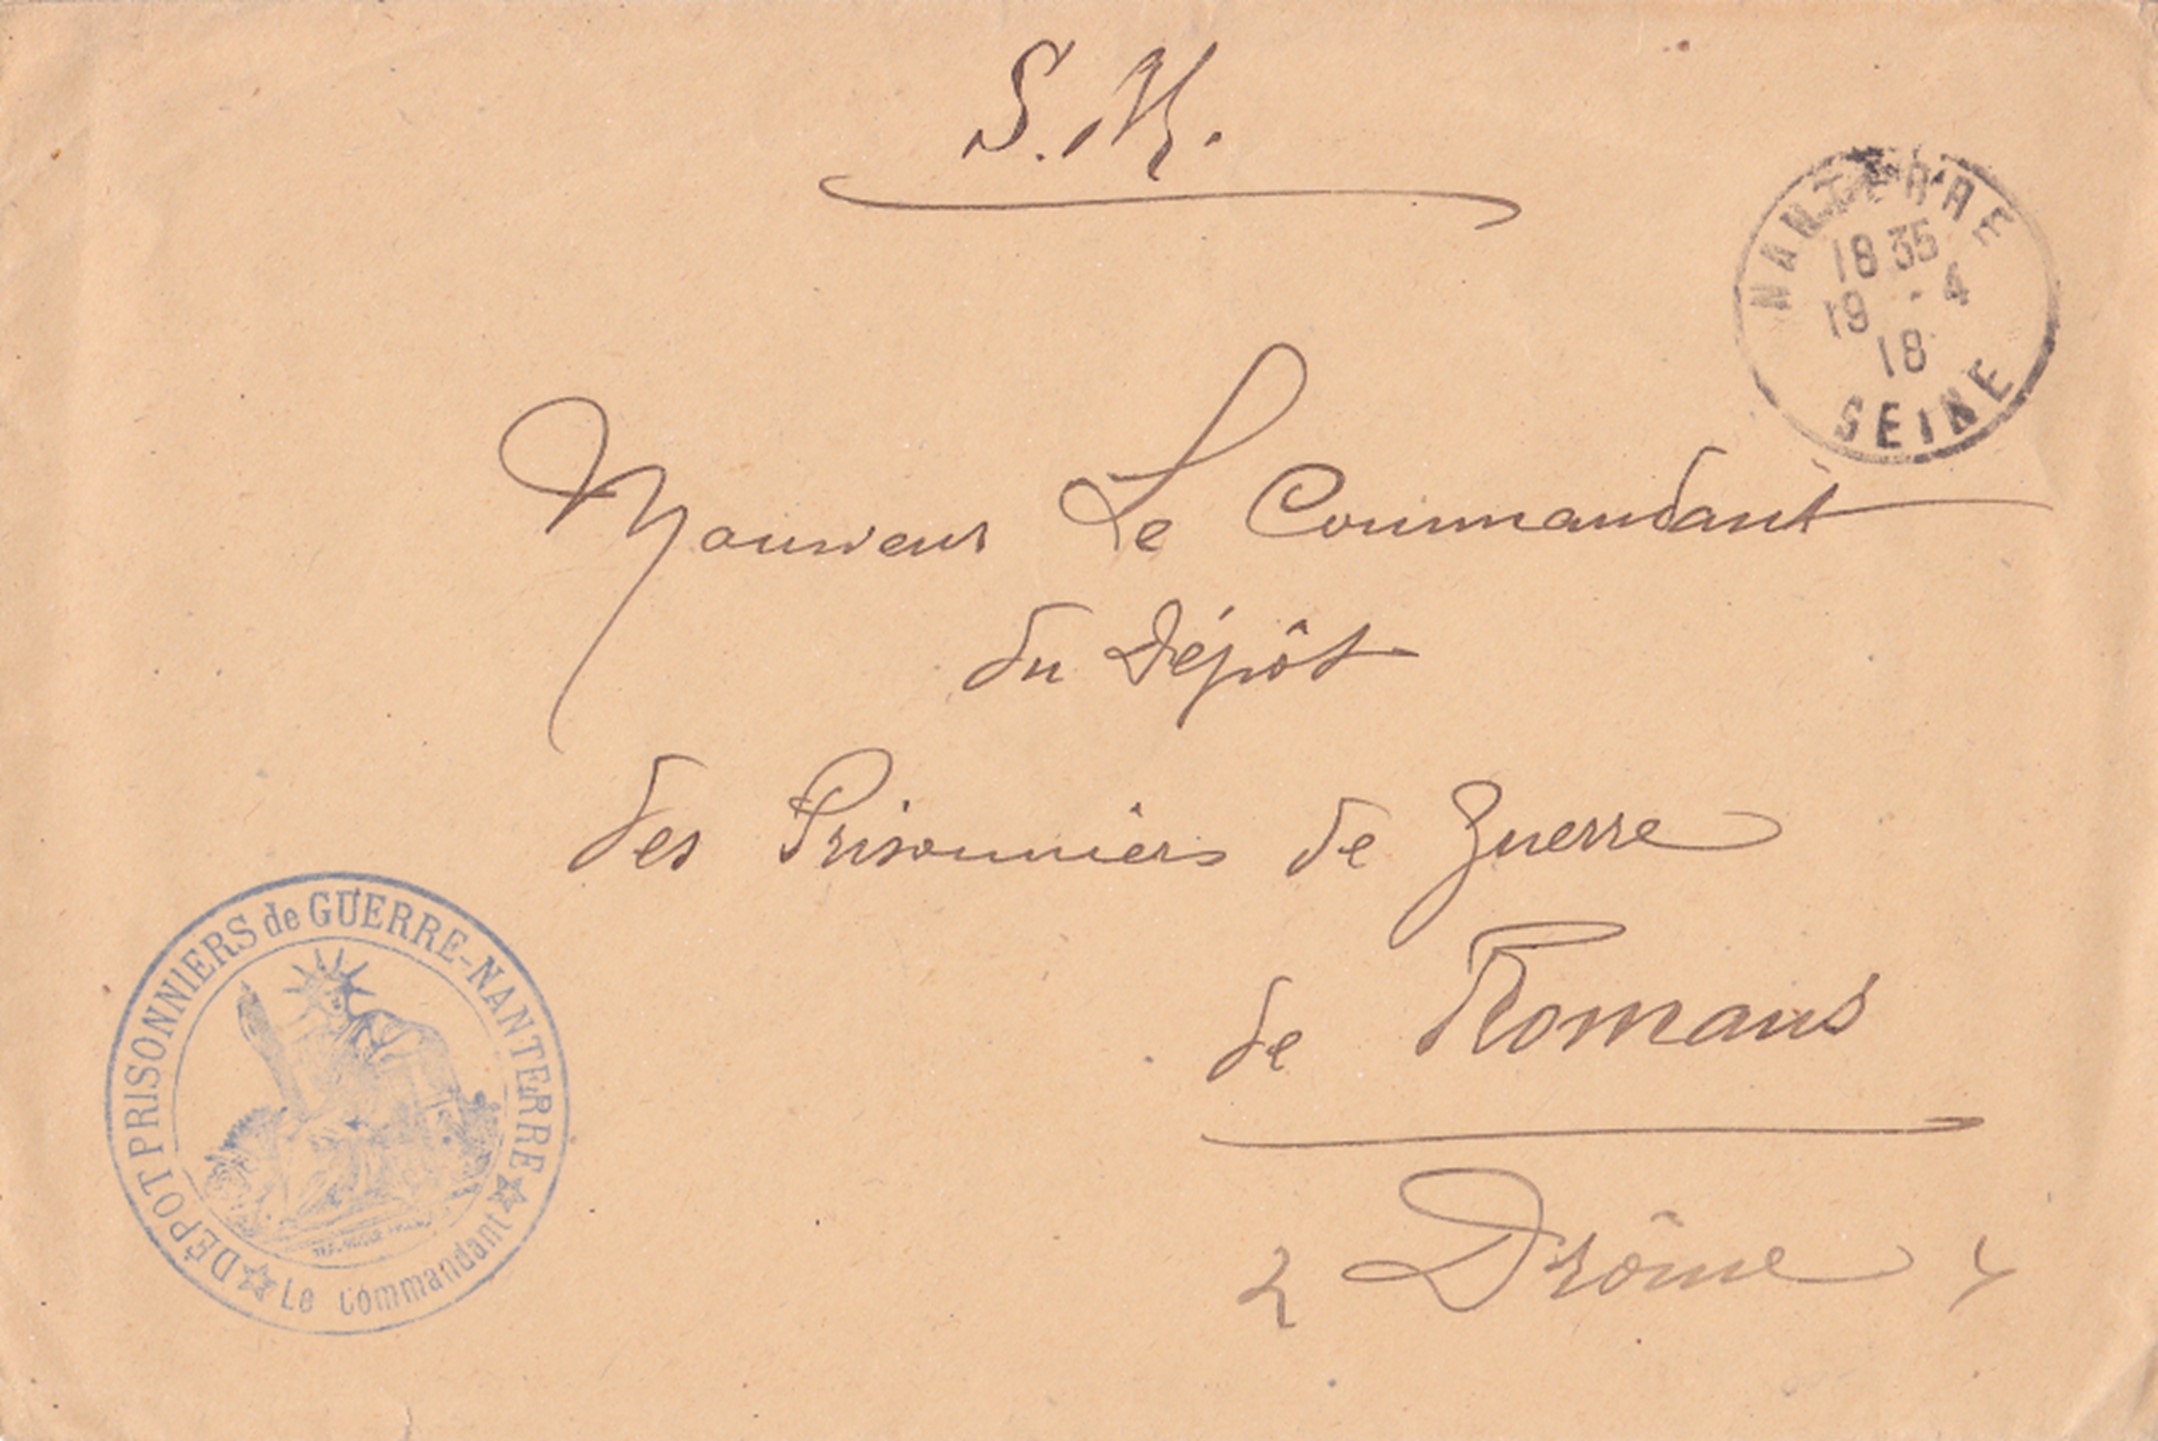 S.M.
NANTERRE
18 35
19 - 4
18
SEINE
Monsieur Le Commandant
du Dépôt
des Prisonniers de Guerre
de Romans
Drôme
DÉPOT PRISONNIERS de GUERRE-NANTERRE
Le Commandant